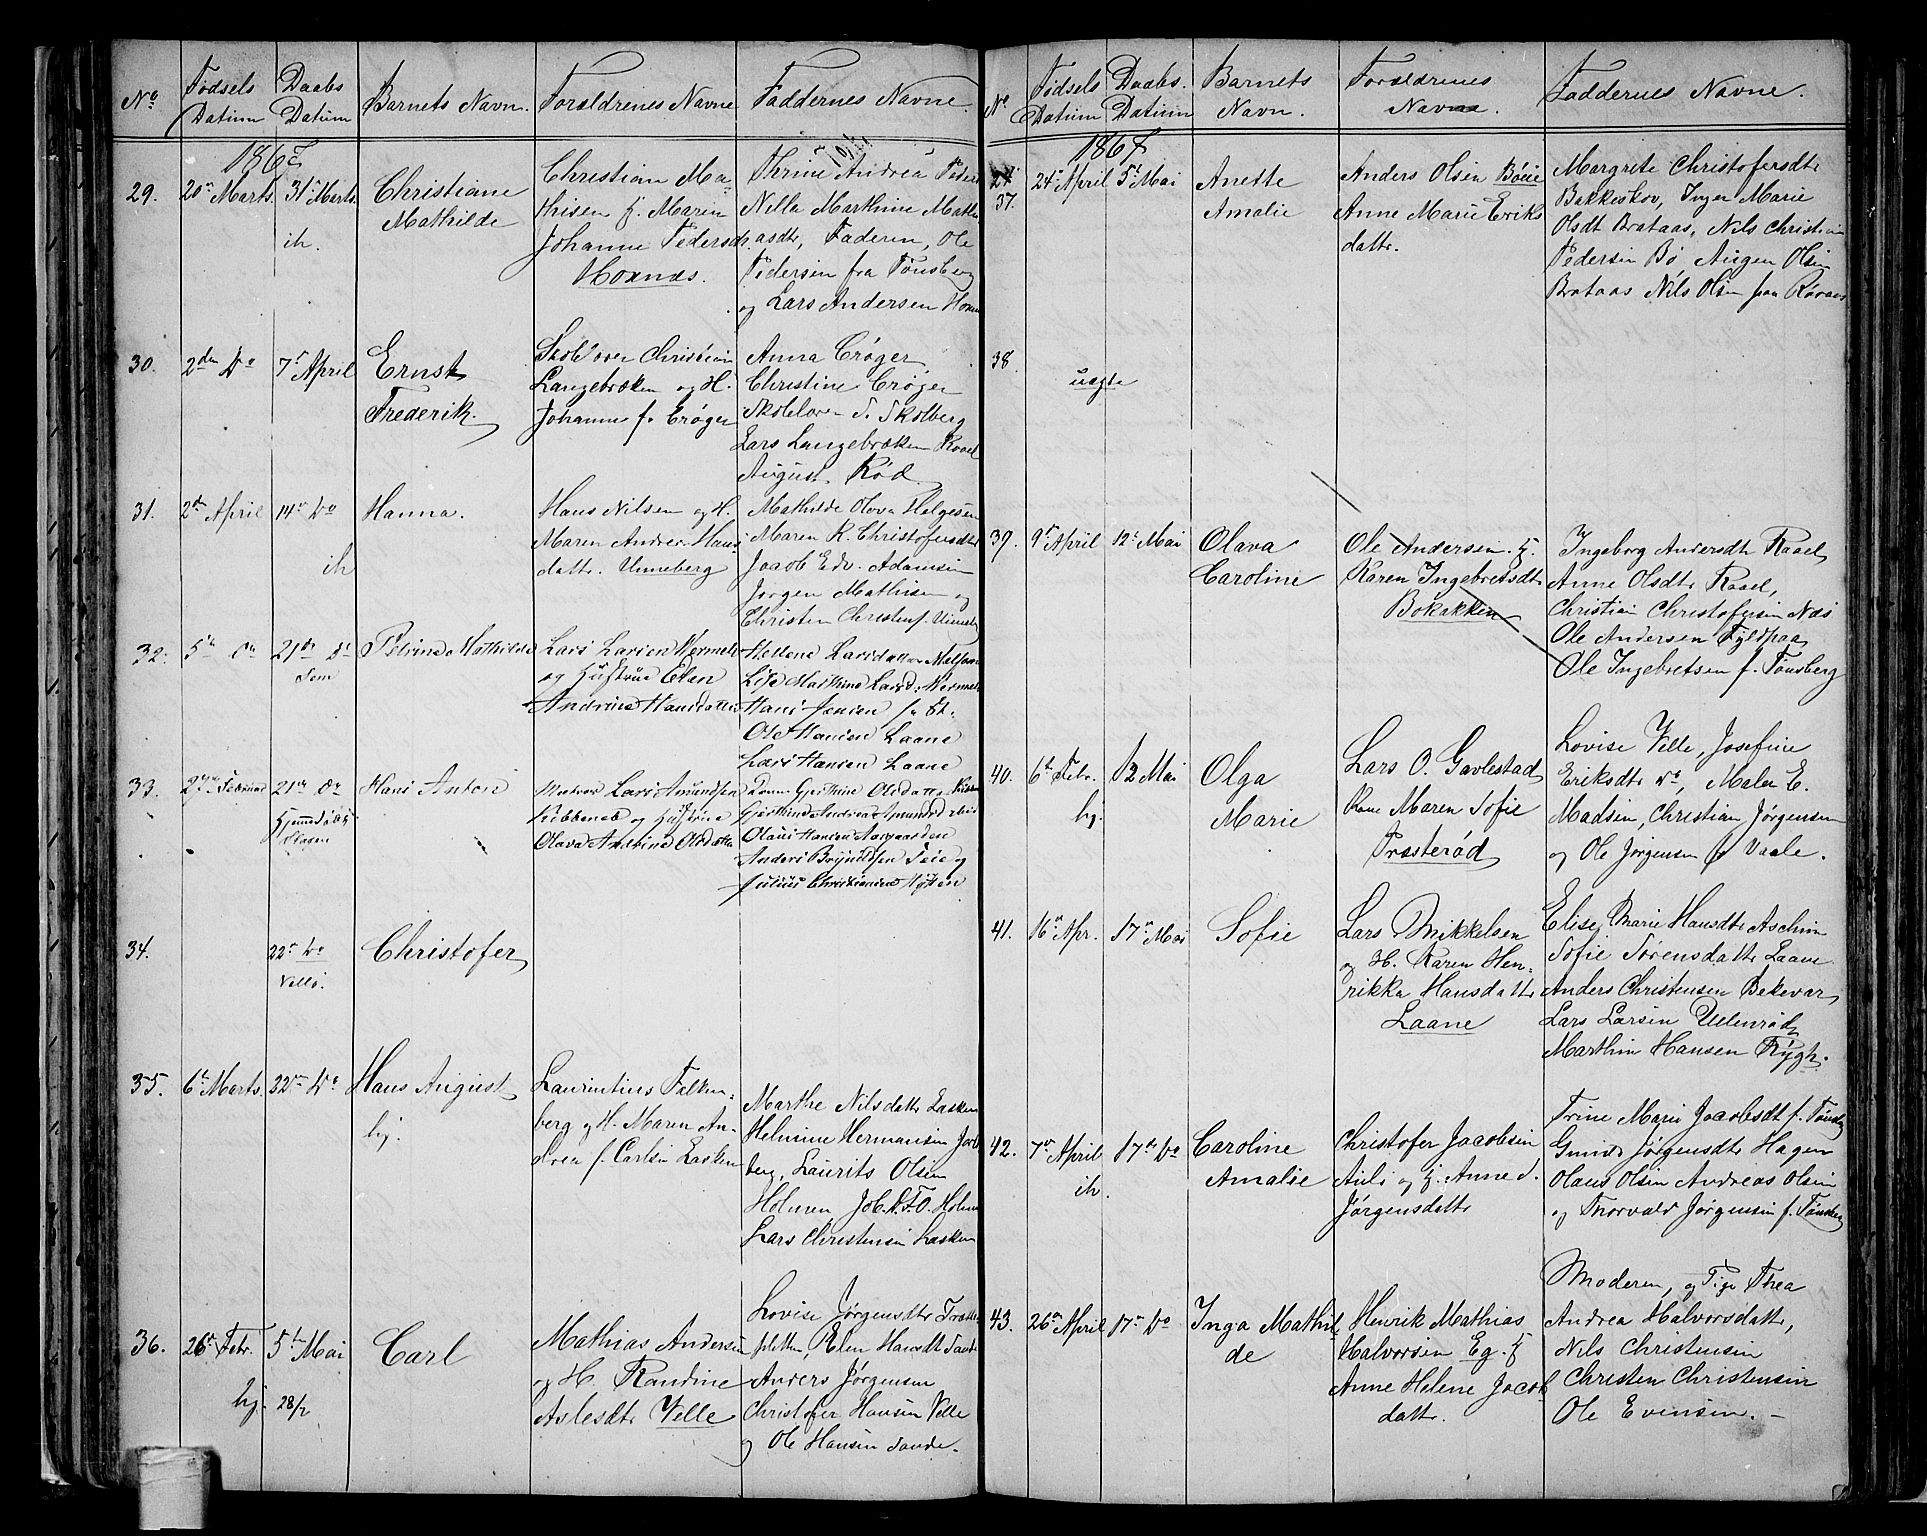 No.
Fødsels Datum
Daabs Datum
Barnets Navn.
Forældrenes Navne
Faddernes Navne.
1867
29.
20de Marts.
31te Marts.
ih.
Christiane
Mathilde
Christian Ma-
thisen & Maren
Johanne Pedersdtr
Moxnæs.
Thrine Andrea Peders
Nilla Marthine Mathi
asdtr, Faderen, Ole
Pedersen fra Tønsberg
og Lars Andersen
30.
2den Do
7de April
Ernst
Frederik.
Christian
Langebrekken og H.
Johanne f. Crøger
Anna Crøger
Christine Crøger
Skolelærer S. Skolberg
Lars Langebrekken Raael
August Rød.
31.
2de April
14de Do
ih
Hanna.
Hans Nilsen og H.
Maren Andrea Hans
datter. Unneberg
Mathilde Olava Helgesen
Maren K. Christofersdtr
Jacob Edv. Adamsen
Jørgen Mathisen og
Christen Christens. Unneb
32.
5te
21de
Sem
Petrine Mathilde
Lars Larsen
og Hustrue Elen
Andrine Hansdatter
Hellene Larsdatter
Lise Marthine Larsd.
Hans Jensen
Ole Hansen Laane
Lars Hansen Laane
33.
27de Februar
21de
Hans Anton
Lars Amundsen
og Hustrue
Olava Andrine Olsdatter
Gjerthine Olsdatter
Gjerthine Andrea Amundsd
Olaus Hansen Aagaarden
Anders Teie og
Julius Christiansen
34.
22de Do
Vallø.
Christofer
35.
6te Marts.
22de Do
Hans August
hj.
Laurentius Falken-
berg og H. Maren An-
drea f. Carlsen
Marthe Nilsdatter
Helmine Hermansen
berg, Laurits Olsen
Holmen
Lars Christensen
36.
26de Febr.
5te Mai
hj. 28/2
Carl
Mathias Andersen
og H. Randine
Aslesdtr Velle
Lovise Jørgensdtr
Elen Hansdt
Anders Jørgensen
Christofer Hansen Velle
og Ole Hansen Sande.
No.
Fødsels Datum
Daabs. Datum
Barnets Navn.
Forældrenes Navne
Faddernes Navne.
1867
37.
24de April
5te Mai
Anette
Amalie
Anders Olsen Bøeie
Anne Marie Eriks
datter.
Margrete Christofersdtr
Bakkeskov, Inger Marie
Olsdt Brataas, Nils Christian
Pedersen Bø Augen Olsen
Brataas Nils Olsen paa
38.
uægte
39.
9de April
12te Mai
Olava
Caroline
Ole Andersen &
Karen Ingebretsdtr
Bokakken
Ingeborg Andersdtr Raael
Anne Olsdtr Raael,
Christian Christofersen Næs
Ole Andersen Fyldpaa
Ole Ingebretsen f. Tønsberg
40.
6te Febr.
hj.
12 Mai
Olga
Marie
Lars O. Gavlestad
Kone Maren Sofie
Præsterød
Lovise Velle, Josefine
Eriksdtr Do, Malen E.
Madsen, Christian Jørgensen
og Ole Jørgensen f. Vaale.
41.
16de Apr.
17de Mai
Sofie
Lars Mikkelsen
og H. Karen Hen-
rikka Hansdattr
Laane
Elise Marie Hansdtr Aschim
Sofie Sørensdatter Laane
Anders Christensen Bekevar
Lars Larsen Ullenrød
Marthin Hansen Rygh.
42.
7de April
ih.
17de Do
Caroline
Amalie
Christofer Jacobsen
Auli og H. Anne S.
Jørgensdatter
Trine Marie Jacobsdt f. Tønsb
Jørgensdtr Hagen
Olaus Olsen Andreas Olsen
og Thorvald Jørgensen f. Tønsberg
43.
26de April
17de Do
Inga Mathil
de
Henrik Mathias
Halvorsen Eg. &
Anne Helene Jacob
datter.
Moderen, og Pige Thea
Andrea Halvorsdatter,
Nils Christensen
Christen Christensen
Ole Evensen. –